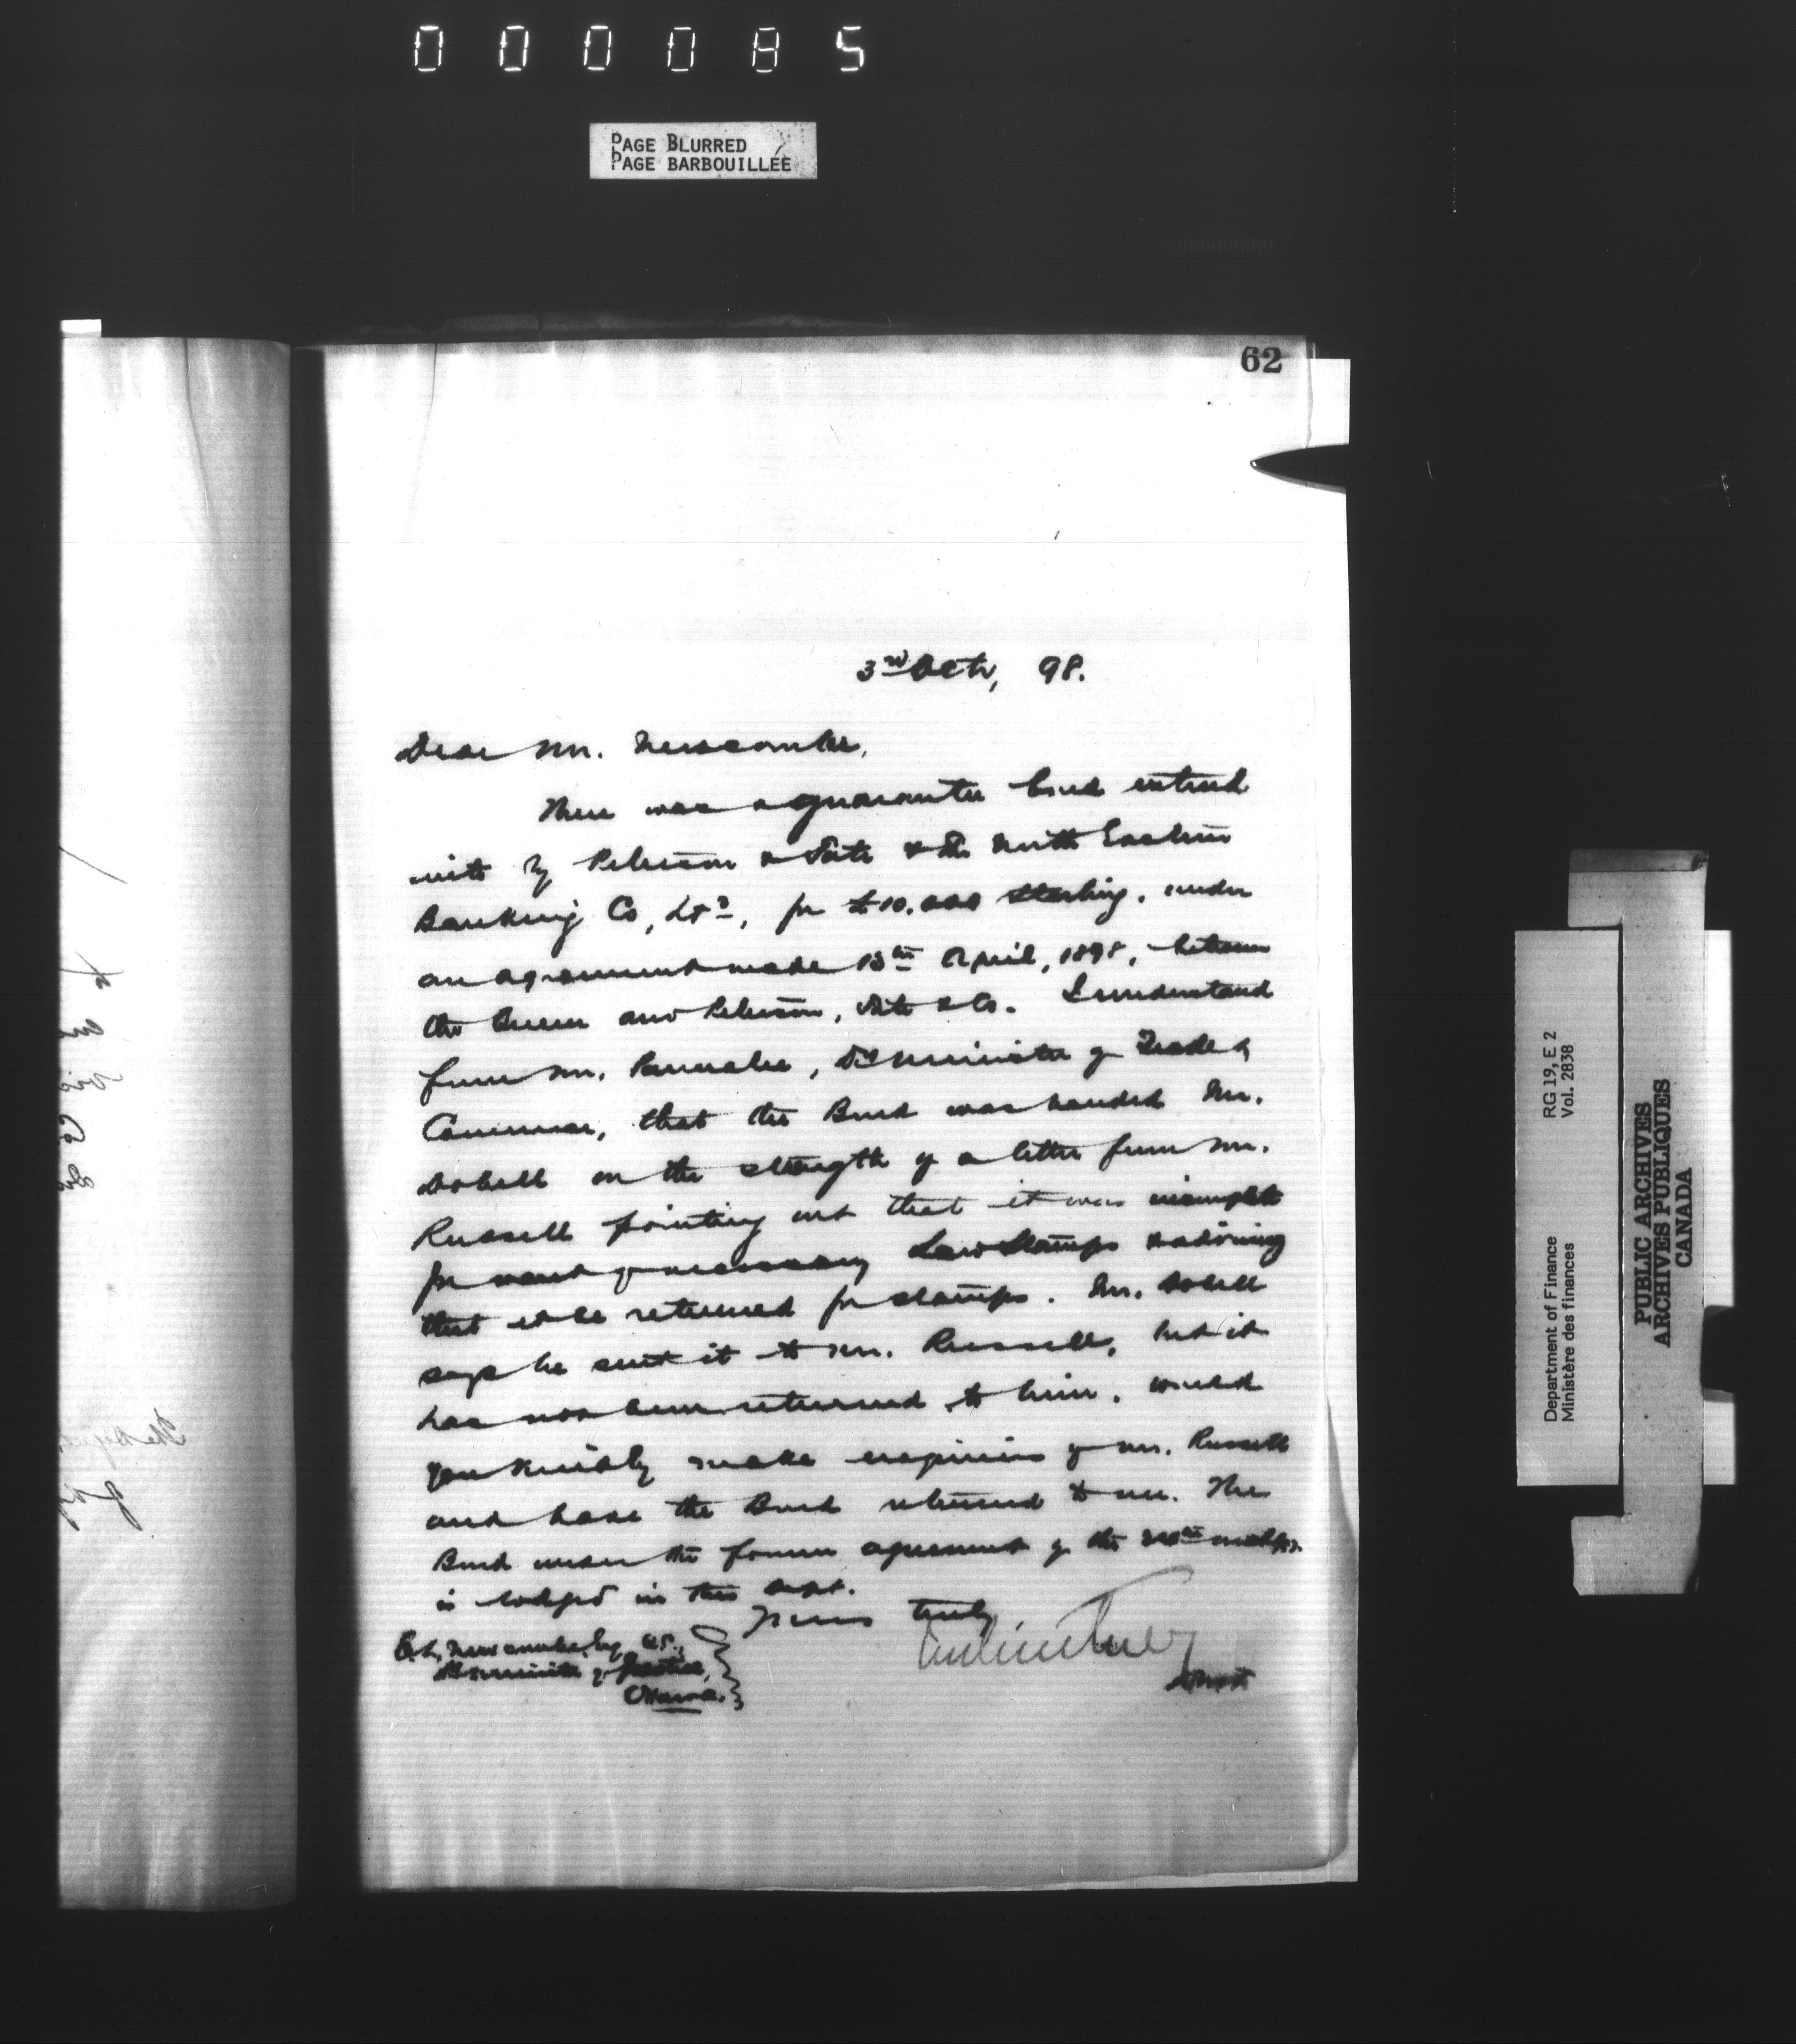 000085
PAGE BLURRED
PAGE BARBOUILLÉE
62
3rd Octr, 98.
Dear Mr. Newcombe,
There was a guarantee bond entered
into by Peterson & Tate & the North Eastern
Banking Co, Ltd, for £10.000 sterling, under
an agreement made 13th April, 1898, between
the Queen and Peterson, Tate & Co. I understand
from Mr. Parmalee, Dy Minister of Trade &
Commerce, that the Bond was handed Mr.
Dobell on the strength of a letter from Mr.
Russell pointing out that it was incomplete
for want of necessary Law Stamps & advising
that it be returned for stamps. Mr. Dobell
says he sent it to Mr. Russell, but it
has not been returned to him. Would
you kindly make enquiries of Mr. Russell
and have the Bond returned to me. The
Bond under the former agreement of the
is lodged in this Dept.
Yours truly
E. L. Newcombe, Esq, Q.C.,
Dy Minister of Justice,
Ottawa.
RG 19, E 2
Vol. 2838
Department of Finance
Ministère des finances
PUBLIC ARCHIVES
ARCHIVES PUBLIQUES
CANADA